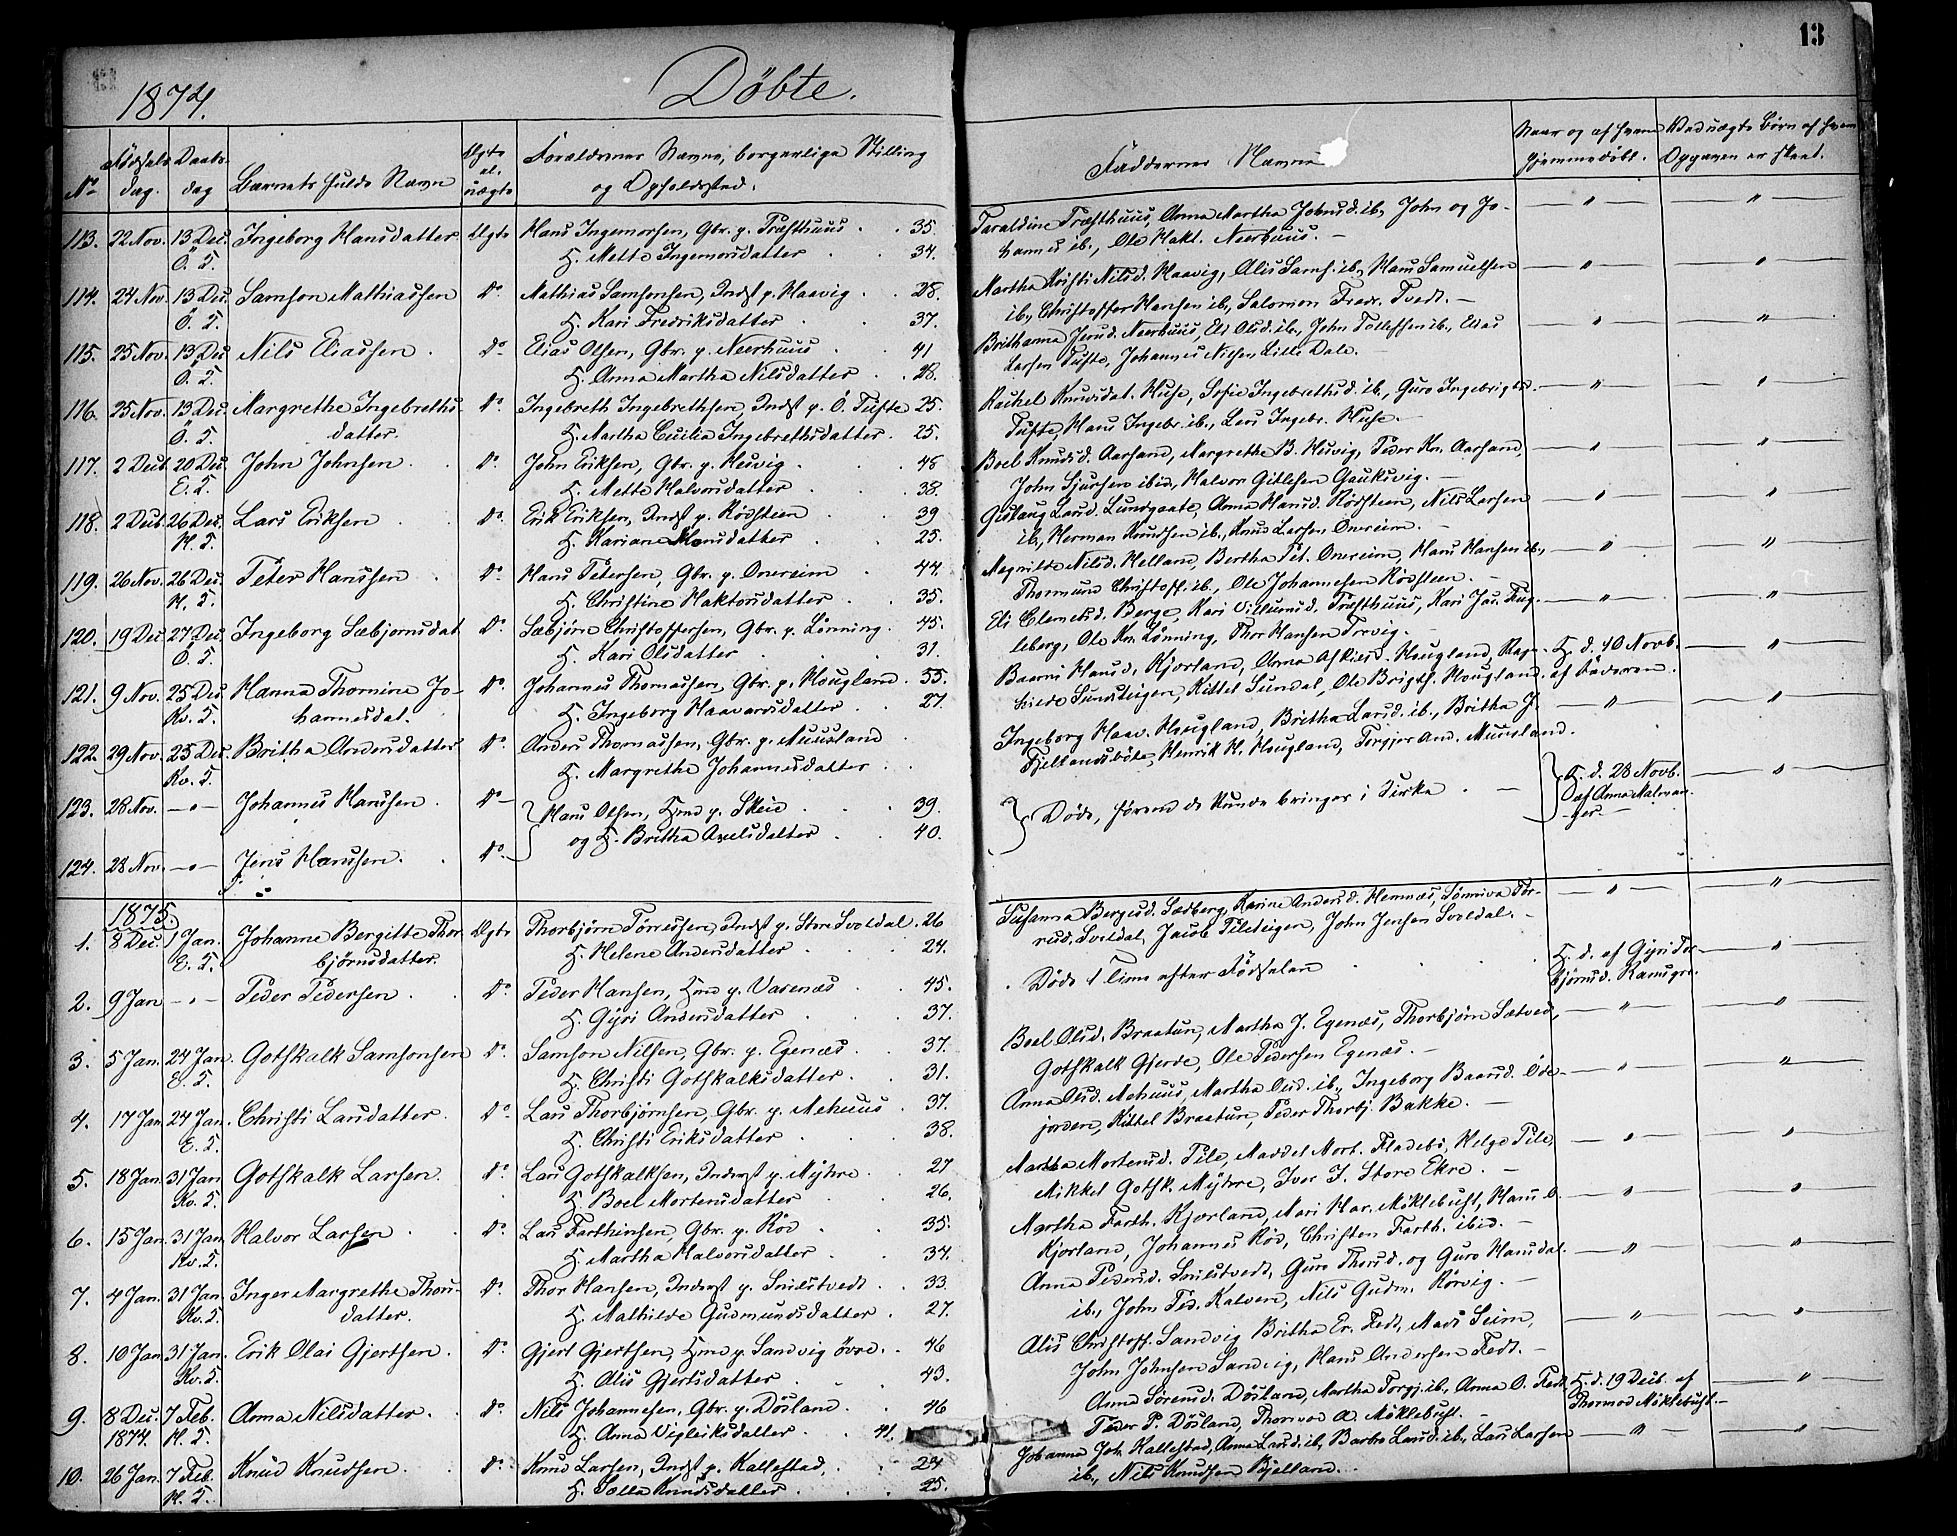 13
1874.
Döbte.
No
Fødsels
dag.
Daabs
dag
Barnets fulde Navn
Ægte
el.
uægte
Forældrenes Navne, borgerlige Stilling
og Opholdssted.
Faddernes Navne
Naar og af hvem
hjemmedöbt.
Ved uægte Børn af hvem
Opgaven er skeet.
113. 22 Nov. 13 Dec. Ingeborg Hansdatter Ægte Hans Ingemorsen, Gbr. p. Træsthuus 35.
Ö. T. H. Mette Ingemorsdatter 34.
Taraldine Træsthuus, Anna Martha Johnsd. ib., John og Jo-
hannes ib., Ole Hakt. Neerhuus.
114. 24 Nov. 13 Dec. Samson Mathiassen Do Mathias Samsonsen, Indst p. Haavig 28.
Ö. T. H. Kari Fredriksdatter 37.
Martha Nilsd. Haavig, Alis Sams. ib., Hans Samuelsen
ib., Christoffer Hansen ib., Salomon Fredr. Tvedt.
115. 25 Nov. 13 Dec Nils Eliassen Do Elias Olsen, Gbr. p. Neerhuus 41
Ö. T. H. Anna Martha Nilsdatter 28.
Brithanna Neerhuus, Eli Olsd. ib., John Tollefsen ib., Elias
Larsen Tufte, Johannes Nilsen Lille Dale.
116. 25 Nov. 13 Dec. Margrethe Ingebreths- Do Ingebreth Ingebrethsen, Indst p. Ö. Tufte 25.
Ö. T. datter. H. Martha Cecilia Ingebrethsdatter 25.
Rachel Knudsdat. Huse, Sofie Ingebrethsd. ib., Guro Ingebrigtd.
Tufte, Hans Ingebr. ib., Lars Ingebr. Huse.
117. 2 Decb. 20 Dec John Johnsen Do John Eriksen, Gbr. p. Hervig 48
E. T. H. Mette Halvorsdatter 38.
Boel Knudsd. Aarsand, Margrethe B. Hervig, Peder Kn. Aarsand,
John Sjursen ibid., Halvor Gitlesen Gauksvig.
118. 2 Decb. 26 Dec. Lars Eriksen Do Erik Eriksen, Indst p. Rödsteen 39
H. T. H. Kariane Hansdatter 25.
Gislaug Larsd. Lundgaate, Anna Hansd. Rödsteen, Nils Larsen
ib., Herman Knudsen ib., Knud Larsen Onereim.
119. 26 Nov. 26 Dec. Peter Hanssen Do Hans Petersen, Gbr. p. Onereim 44.
H. T. H. Christine Haktorsdatter 35.
Magnilde Nilsd. Helland, Bertha Pet. Onereim, Hans Hansen ib.,
Thormund Christoff. ib., Ole Johannesen Rödsteen.
120. 19 Dec 27 Dec Ingeborg Sæbjornsdat. Do Sæbjörn Christoffersen, Gbr. p. Lönning 45.
Ö. T. H. Kari Olsdatter 31.
Eli Clemetsd. Berge, Kari Villumsd. Træsthuus, Kari Jac. Fug-
leberg, Ole Kn. Lönning, Thor Hansen Torvig.
121. 9 Nov. 25 Dec Hanna Thomine Jo- Do Johannes Thomassen, Gbr. p. Hougland 55.
Kv. T. hannesdat. H. Ingeborg Haavardsdatter 27
Baarni Hansd. Kjorland, Anna Hougland, Rag-
Sundsteigen, Kittel Sundal, Ole Brigth. Hougland.
H. d. 10 Novb.
af Faderen.
122. 29 Nov. 25 Dec Britha Andersdatter Do Anders Thomassen, Gbr. p. Muusland
Kv. T. H. Margrethe Johannesdatter
Ingeborg Haav. Hougland, Britha Larsd. ib., Britha J.
Fjellandsböte, Henrik H. Hougland, Torgjer And. Muusland.
123. 28 Nov. Johannes Hanssen Do Hans Olsen, Hmd p. Skeie 39.
og H. Britha Axelsdatter 40.
Döde, förend de kunde bringes i Kirke
H. d. 28 Novb.
af Anna Malman-
ger.
124. 28 Nov. Jens Hanssen. Do
1875.
1. 8 Dec. 1 Jan. Johanne Bergitte Thor- Ægte Thorbjörn Törresen, Indst p. Store Sveldal 26
E. T. björnsdatter. H. Helene Andersdatter 24.
Susanna Bergesd. Sædberg, Karine Andersd. Hemnæs, Sönneva Tor-
Sveldal, Jacob Pileteigen, John Jensen Sveldal.
2. 9 Jan Peder Pedersen Do Peder Hansen, Hmd p. Varenæs 45.
H. Gyri Andersdatter 37.
Döde 1 Time efter Födselen
H. d. af Gyri Tor-
björnsd. Ramsgro.
3. 5 Jan. 24 Jan. Gotskalk Samsonsen Do Samson Nilsen, Gbr. p. Egenæs 37.
E. T. H. Christi Gotskalksdatter 31.
Boel Olsd. Braatun, Martha J. Egenæs, Thorbjörn Sætved,
Gotskalk Gjerde, Ole Pedersen Egenæs.
4. 17 Jan 24 Jan. Christi Larsdatter Do Lars Thorbjörnsen, Gbr. p. Mehuus 37.
E. T. H. Christi Eriksdatter 38.
Anna Olsd. Mehuus, Martha Olsd. ib., Ingeborg Baarsd. Öde-
jorden, Kittel Braatun, Peder Thorbj. Bakke.
5. 18 Jan. 31 Jan Gotskalk Larsen Do Lars Gotskalksen, Inderst p. Myhre 27
Kv. T. H. Boel Mortensdatter 26.
Martha Mortensd. Pile, Maddel Mort. Fladebö, Helge Pile,
Mikkel Gotsk. Myhre, Iver I. Store Ekre.
6. 15 Jan. 31 Jan Halvor Larsen Do Lars Farthinsen, Gbr. p. Röd 35.
Kv. T. H. Martha Halvorsdatter 34.
Martha Farth. Kjorland, Mari Har. Möklebust, Hans O.
Kjorland, Johannes Röd, Christen Farth. ibid.
7. 4 Jan. 31 Jan. Inger Margrethe Thors- Do Thor Hansen, Inderst p. Snilstvedt 33
Kv. T. datter. H. Mathilde Gudmundsdatter 27.
Anna Pedersd. Snilstvedt, Guro Thorsd. og Guro Hansdat.
ib., John Ped. Kalven, Nils Gudm. Rörvig.
8. 10 Jan 31 Jan. Erik Olai Gjertsen Do Gjert Gjertsen, Hmd p. Sandvig övre 46
Kv. T. H. Alis Gjertsdatter 43.
Alis Christoff. Sandvig, Britha Er. Fedt, Mads Seim,
John Johnsen Sandvig, Hans Andersen Fedt.
9. 8 Dec. 7 Feb. Anna Nilsdatter Do Nils Johannesen, Gbr. p. Dösland 46
1874. H. T. H. Anna Vigleiksdatter 41.
Anna Sörensd. Dösland, Martha Torgj. ib., Anna O. Fedt,
Peder P. Dösland, Thormod A. Möklebust.
H. d. 19 Decb. af
Thormod Möklebust.
10. 26 Jan. 7 Feb. Knud Knudsen Do Knud Larsen, Indst p. Kallestad, 24
H. T. H. Knudsdatter 25.
Johanna Joh. Kallestad, Anna Larsd. ib., Barbro Larsd. ib., Lars Larsen
ib., Nils Knudsen Bjelland.